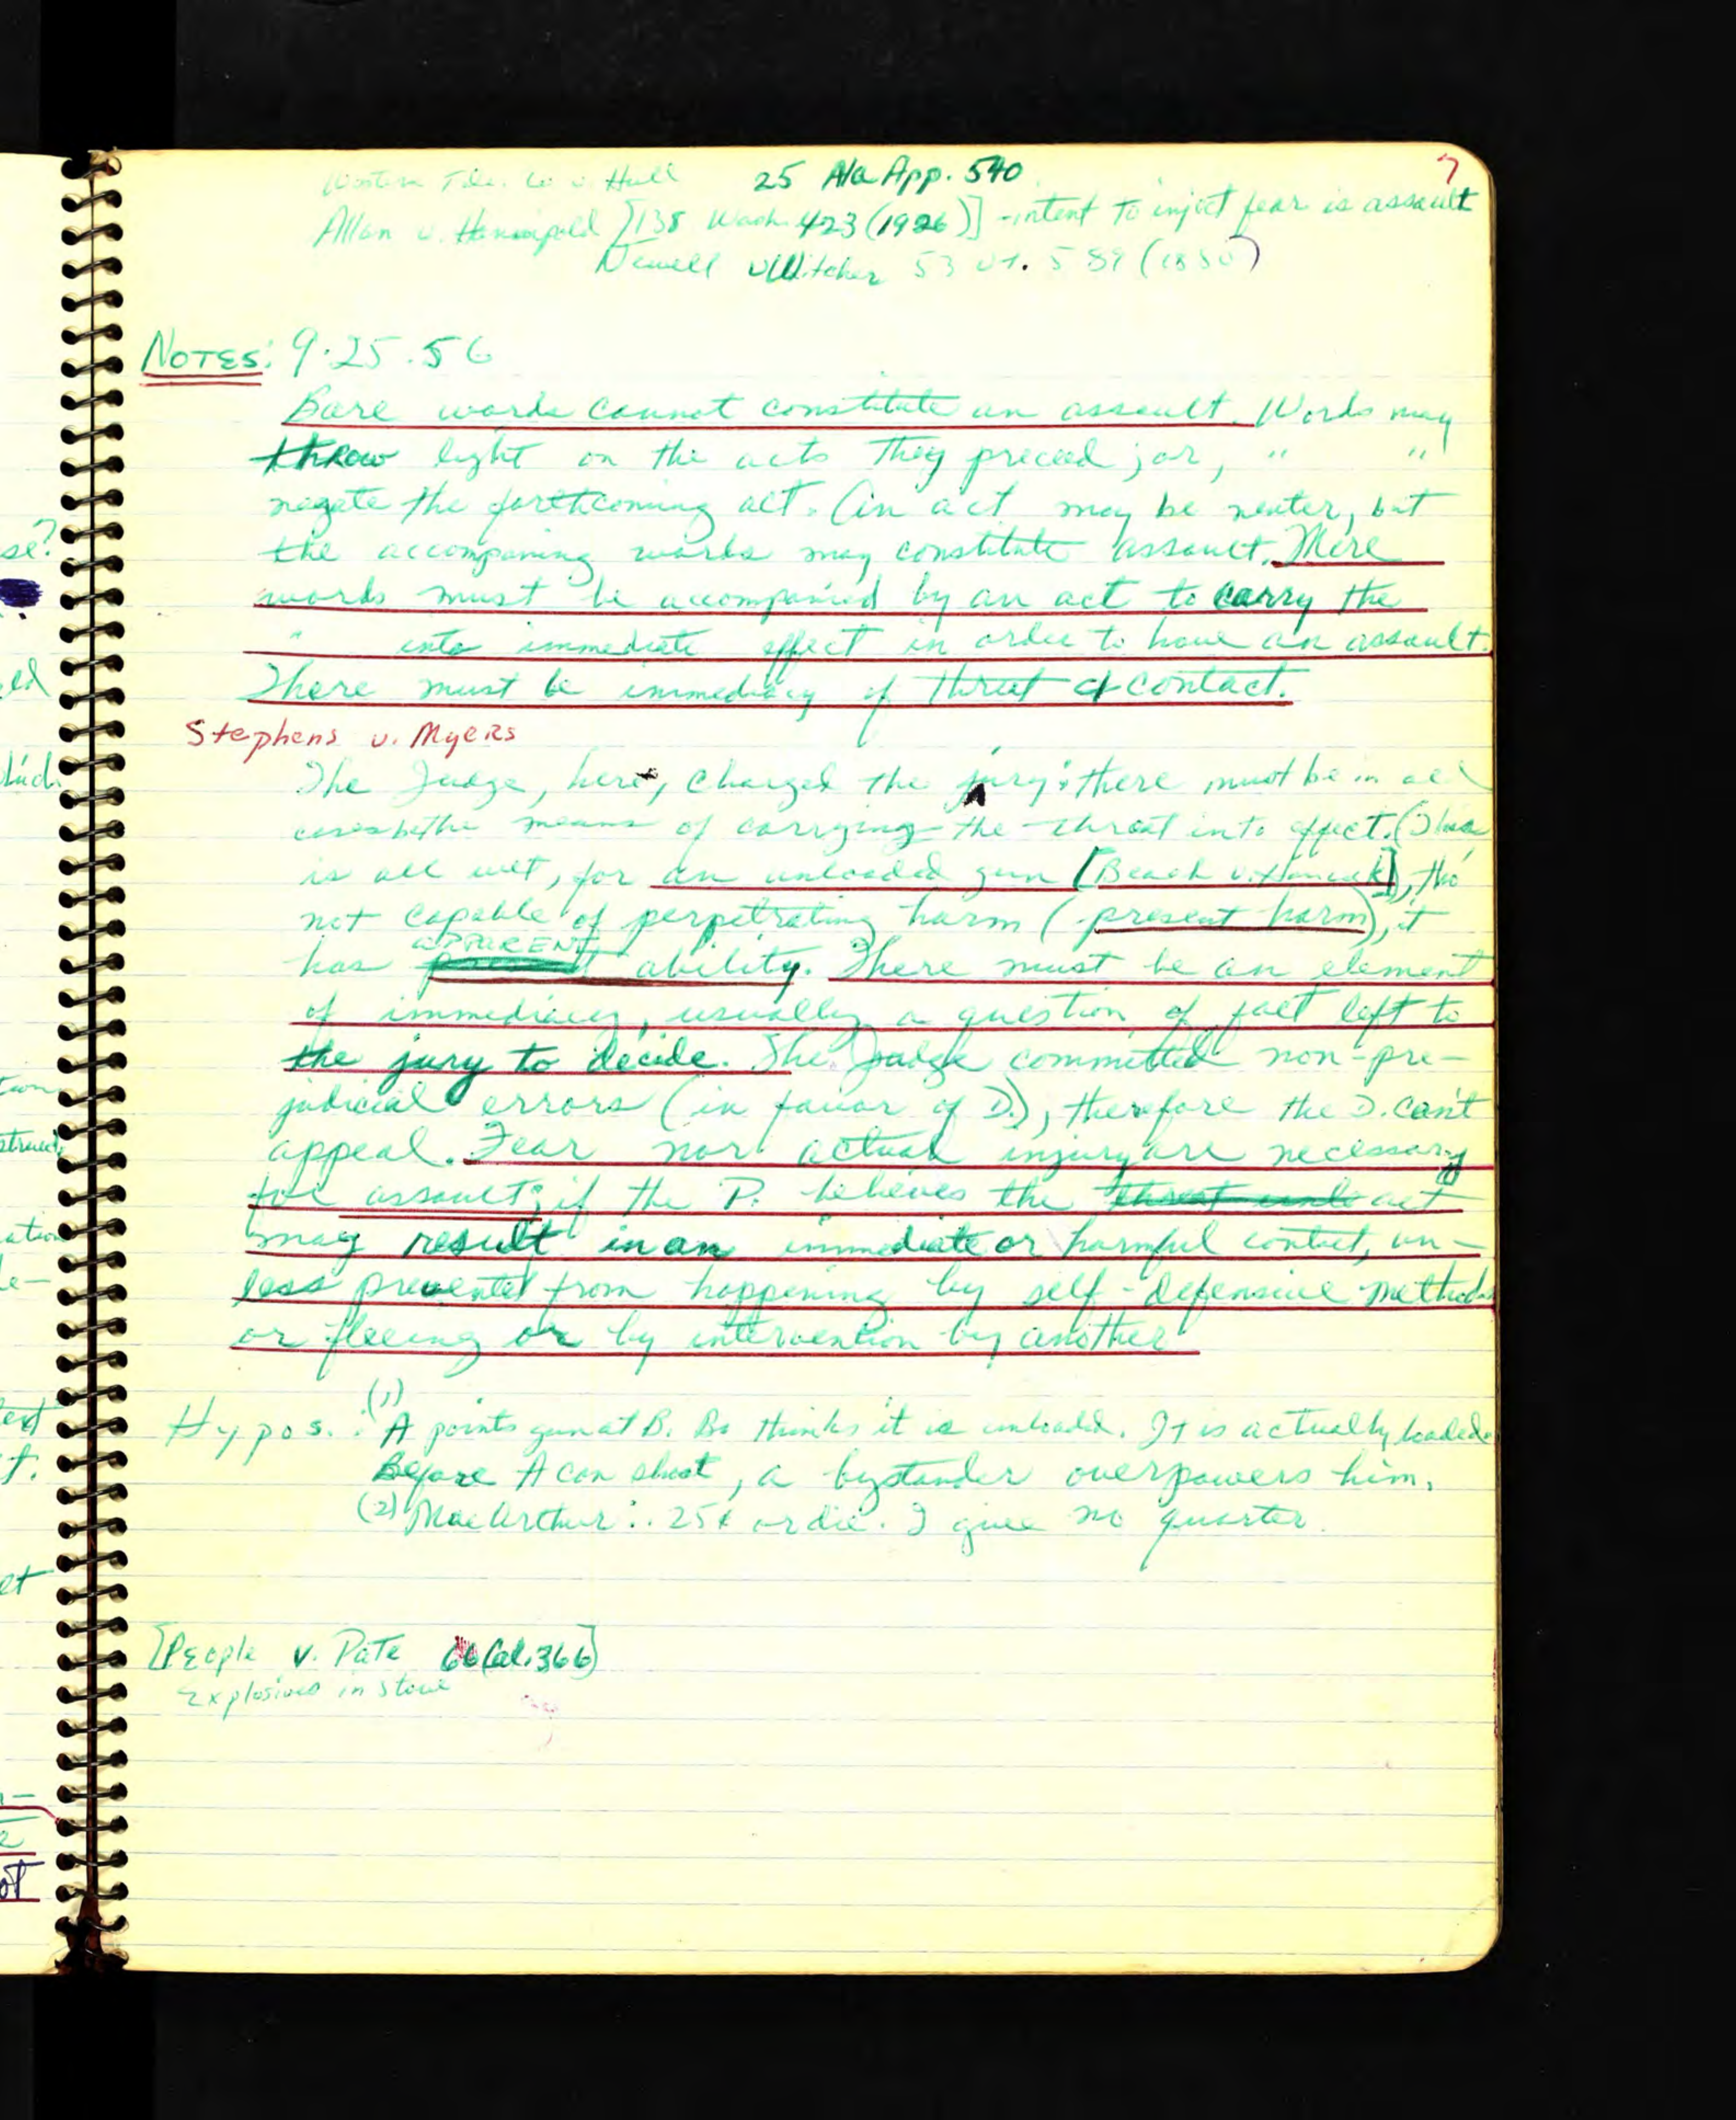 7
Western Tele. Co v. Hill 25 Ala App. 540
Allan v. [138 Wash. 423 (1926)] - intent to inject fear is assault
Newell v Witcher 53 Vt. 589 (1880)
NOTES: 9.25.56
Bare words cannot constitute an assault. Words may
throw light on the acts they preceed; or, " "
negate the forthcoming act. An act may be neuter, but
the accompaning words may constitute assault. Mere
words must be accompanied by an act to carry the
" into immediate effect in order to have an assault.
There must be immediacy of threat of contact.
Stephens v. Myers
The Judge, here, charged the jury: there must be in all
cases the means of carrying the threat into effect. (This
is all wet, for an unloaded gun [Beach v. Hancock]), tho'
not capable of perpetrating harm (present harm), it
has APPARENT ability. There must be an element
of immediacy, usually a question of fact left to
the jury to decide. The Judge committed non-pre-
judicial errors (in favor of D.), therefore the D. can't
appeal. Fear nor actual injury are necessary
for assault; if the P. believes the act
may result in an immediate or harmful contact, un-
less prevented from happening by self-defensive methods
or fleeing or by intervention by another
Hypos.: (1) A points gun at B. B. thinks it is unloaded. It is actually loaded.
Before A can shoot, a bystander overpowers him.
(2) MacArthur: 25¢ or die. I give no quarter.
[People v. Pate 60 Cal. 366]
Explosives in stove
se?
ed
which
tion
struct
ation
le-
f.
et
2